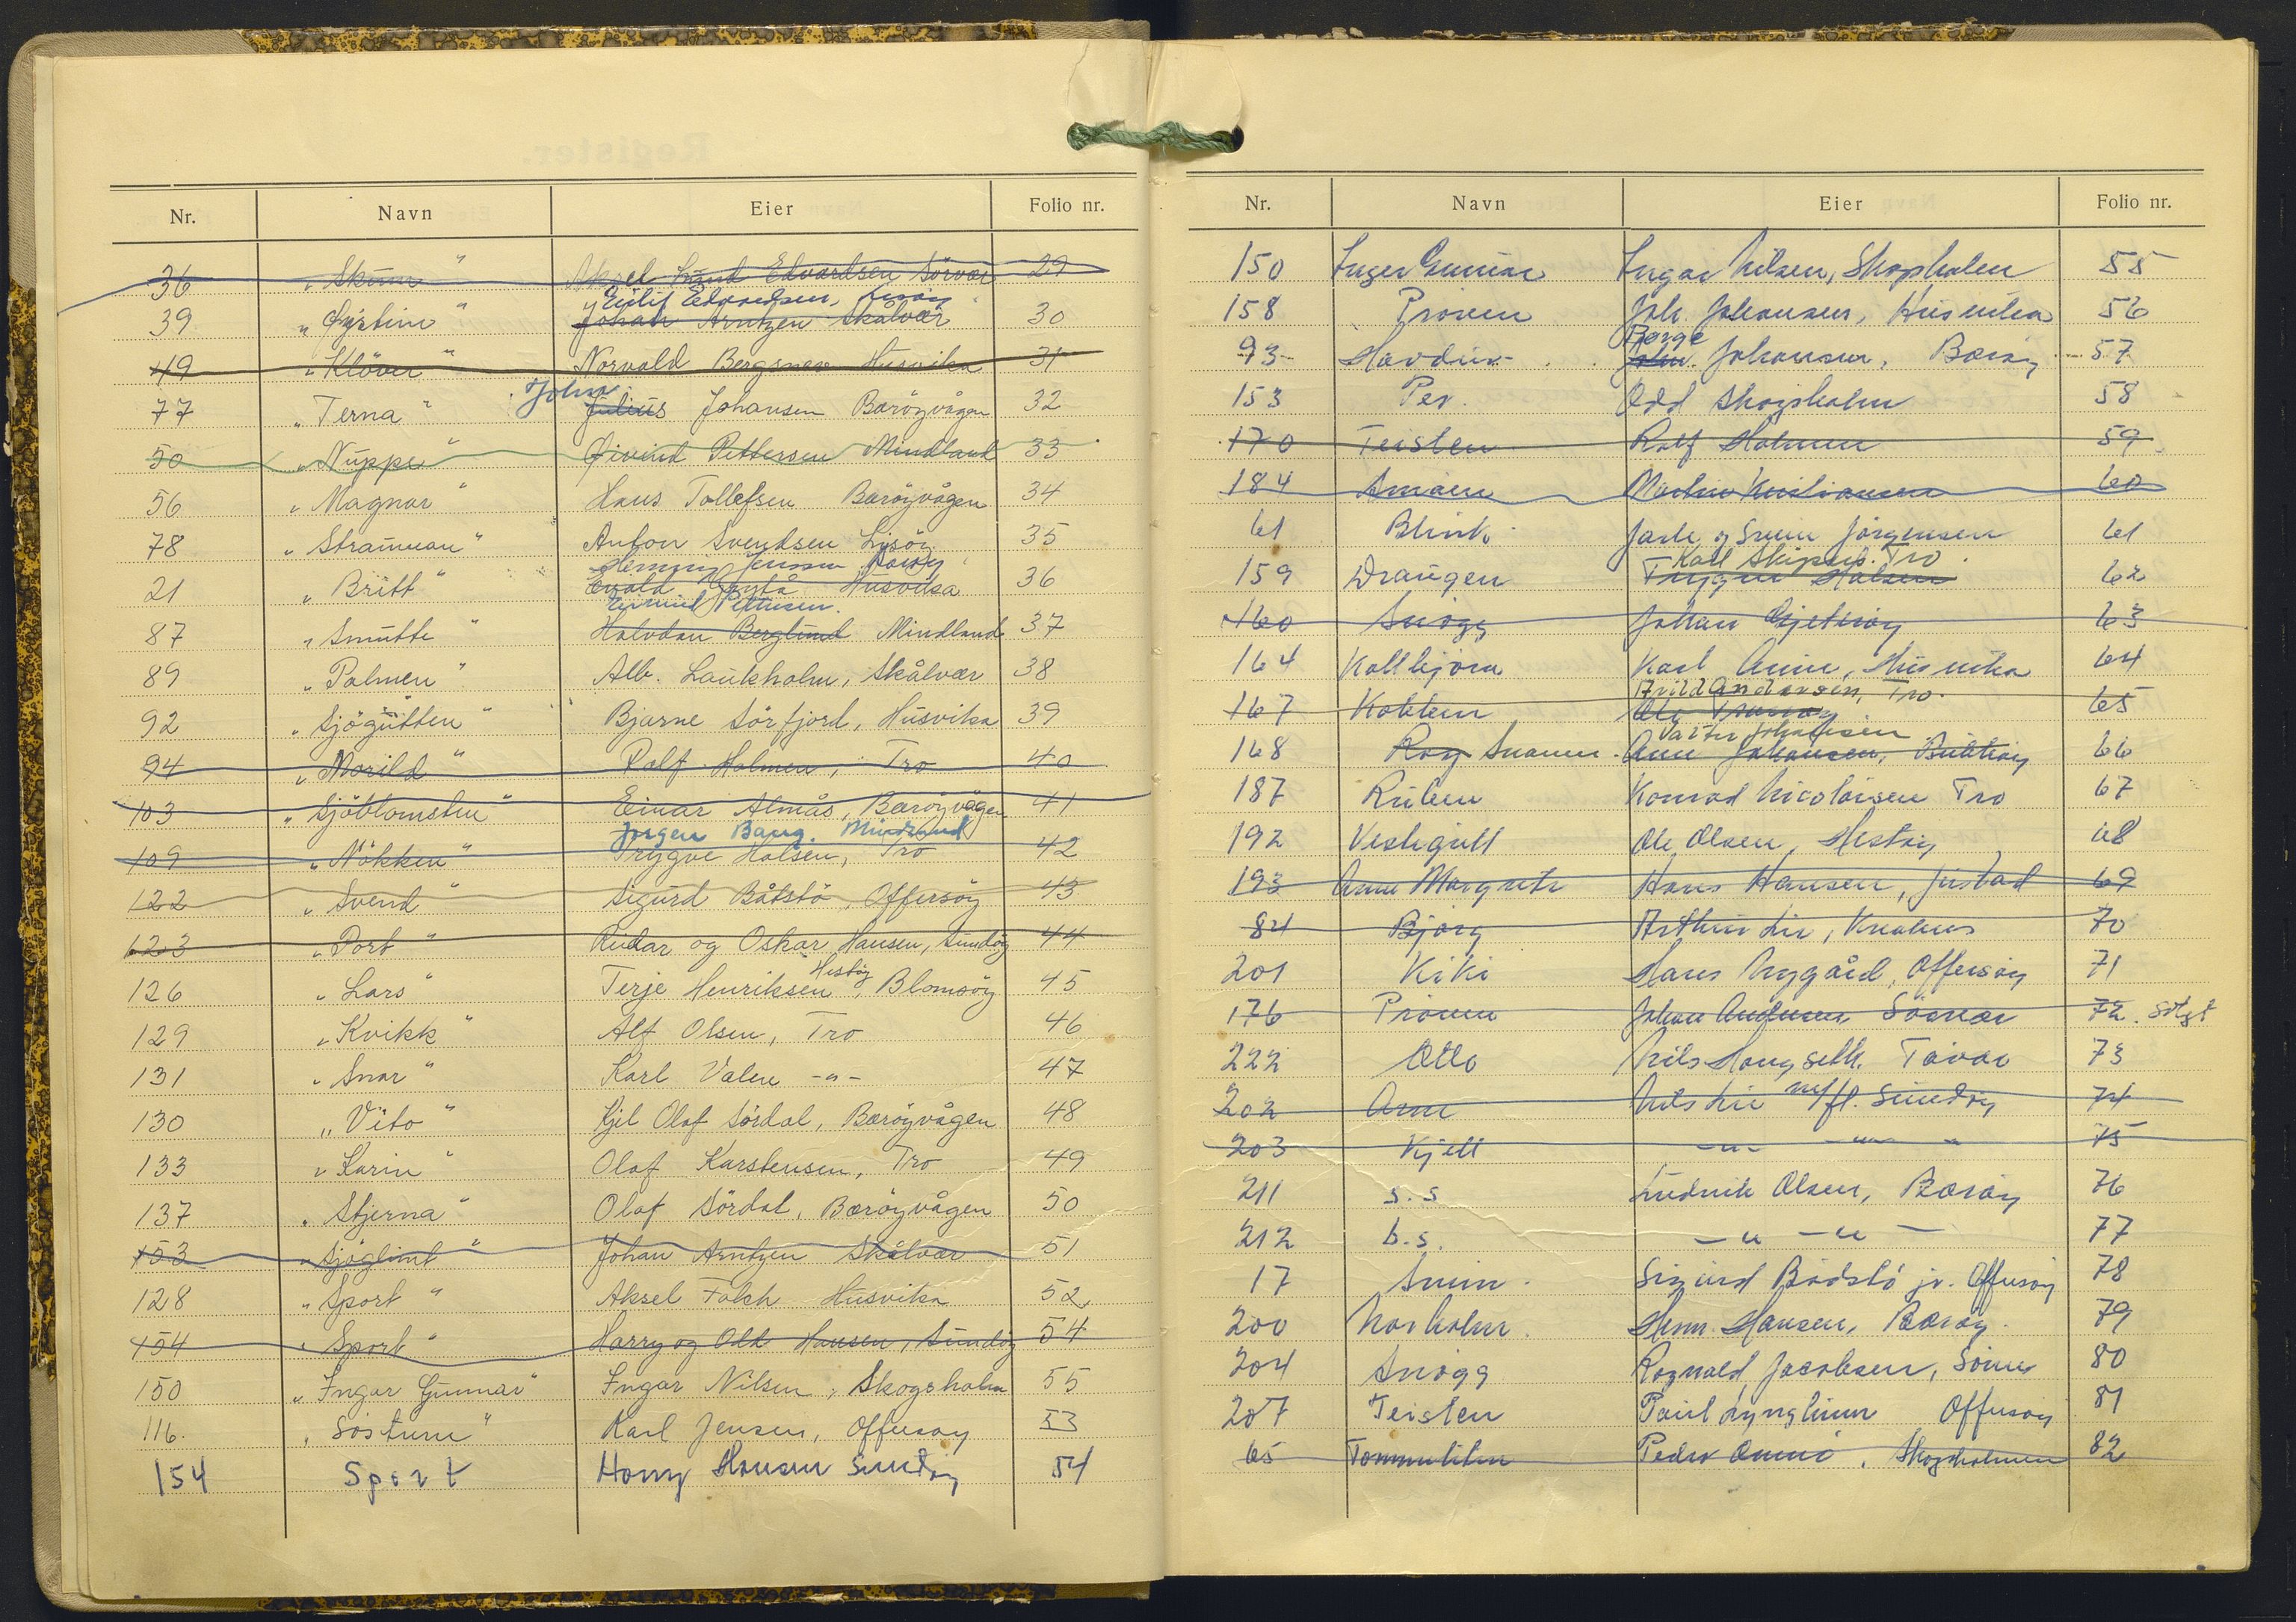 Nr. Navn Eier Folio nr.
36 „Skum" Aksel Lund Edvardsen Sörvær 29
Eilif Edvardsen,
39 „Øystein" Johan Arntzen Skålvær 30
49 „Klöver" Norvald Bergsnev Husvika 31
John
77 „Terna" Julius Johansen Baröyvågen 32
50 „Nuppe" Øivind Pettersen Mindland 33
56 „Magnar" Hans Tollefsen Baröyvågen 34
78 „Strauman" Anton Svendsen Lisöy 35
Henning Jenssen Baröy
21 „Britt" Evald Husvika 36
Eivind Pettersen.
87 „Snutte" Halvdan Berglund Mindland 37
89 „Palmen" Alb. Laukholm, Skålvær 38
92 „Sjögutten" Bjarne Sörfjord, Husvika 39
94 „Morild" Rolf Holmen, Tro 40
103 „Sjöblomsten" Einar Almås, Baröyvågen 41
Jörgen Bang. Mindland
109 „Nökken" Trygve Halsen, Tro 42
122 „Svend" Sigurd Båtstö, Offersöy 43
123 „Port" Reidar og Oskar Hansen, Sundöy 44
Hestöy
126 „Lars" Terje Henriksen, Blomsöy 45
129 „Kvikk" Alf Olsen, Tro 46
131 „Snar" Karl Valen -"- 47
130 „Vito" Kjel Olaf Sördal, Baröyvågen 48
133 „Karin" Olaf Karstensen, Tro 49
137 „Stjerna" Olaf Sördal, Baröyvågen 50
153 „Sjöglimt" Johan Arntzen Skålvær 51
128 „Sport" Aksel Falch Husvika 52
154 „Sport" Harry og Odd Hansen, Sundöy 54
150 „Ingar Gunnar" Ingar Nilsen, Skogsholm 55
116. „Söstrene" Karl Jensen, Offersöy 53
154 Sport Harry Hansen Sundöy 54
Nr. Navn Eier Folio nr.
150 Inger Gunnar Ingar Nilsen, Skogsholmen 55
158 Prönen Joh. Johansen, Husvika 56
Borge
93 Havdur Johansen, Baröy 57
153 Per. Odd Skogsholm 58
170 Teisten Rolf Holmen 59
184 Martin Kristiansen 60
61 Blink. Jarle og Svein Jörgensen 61
Karl Skipsp. Tro
159 Draugen Trygve Halsen 62
160 Snögg Johan Gjetöy 63
164 Kallbjörn Karl Husvika 64
Arvid Andersen, Tro.
167 Kobben Ole 65
Johansen
168 Roy Svanen Arne Johansen, 66
187 Ruben Konrad Nicolaisen Tro 67
192 Vestegutt Ole Olsen, Hestöy 68
193 Anne Margrete Hans Hansen, Justad 69
84 Bjørg Arthur Lie, 70
201 Kiki Hans Nygård, Offersöy 71
176 Prönen Johan Andersen, Sörvær 72. Solgt
222 Otto Nils Haugseth. Tåvær 73
202 Arne Nils Lie m/fl. Sundöy 74
203 Kjell -"- -"- " 75
211 S.S Ludvik Olsen, Baröy 76
212 b.s. -"- -"- 77
17 Smin. Sigurd Bådstö jr. Offersöy 78
200 Norholm. Herm. Hansen, Baröy. 79
204 Snögg Ragnvald Jacobsen, 80
207 Teisten Paul Lyngheim Offersöy 81
65 Tommeliten Peder, Skogsholmen 82